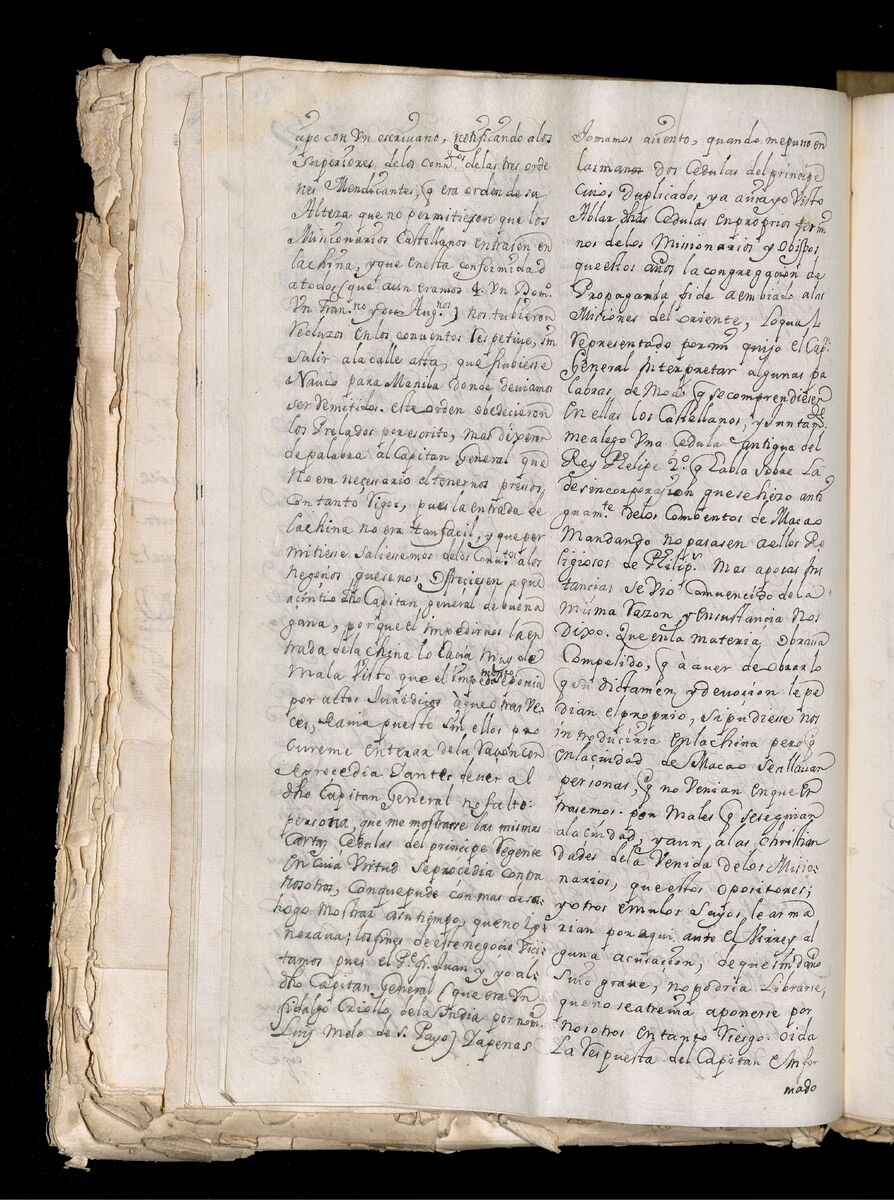 upe con Vn escriuano, notificando a los
Superiores de los conu.tos de las tres orde
nes Mendicantes, q era orden de su
Alteza que no permitiesen que los
Missionarios Castellanos entrasen en
la china, y que en esta conformidad
a todos (que aun eramos 4. Vn Dom.o
Vn Fran.no y dos Aug.nos) nos tubieron
recluzos en los conuentos respetiue, sin
salir a la calle asta, que hubiesse
Nauio para Manila donde deuiamos
ser remitidos. este orden obedecieron
los Prelados por escrito, mas dixeron
de palabra al Capitan General que
no era neçessario el tenernos pressos,
con tanto rigor, pues la entrada de
la china no era tan facil, y que per
mitiesse saliessemos de los Conu.tos a los
negoçios que se nos ofreciesen a que
acintio dho Capitan general de buena
gana, porque el impedirnos la en
trada de la china lo haçia muy de
mala Visto que el impedimento se ponia
por actos Juridicos à que otras Ve:
ces, hauia puesto sin ellos pro
cureme enterar de la raçon con
se procedia Y antes de uer al
dho Capitan General no falto:
persona, que me mostrasse las mismas
Cartas Cedulas del principe regente
en cuia Virtud se procedia contra
nosotros, con que pude con mas desa:
hogo mostrar a su tiempo, que no ig
noraua; los fines de este negoçio Vici
tamos pues el P.e fr. Juan y yo al:
dho Capitan General (que era Vn
fidalgo Criollo, de la India por nom.e
Luis Melo de S. Payo) Y apenas
tomamos aciento, quando me puso en
las manos dos Cedulas del principe
cuios duplicados, ya auia yo Visto
Ablar dhas Cedulas en proprios termi
nos de los Missionarios y Obispos
que estos años la congregaçion de
Propaganda fide a embiado a las
Misiones del oriente, lo qual
representado por mi quijo el Cap.n
General Interpretar algunas pa
labras, de modo q se comprendiesen
en ellas los Castellanos; y Juntam.te
me alego Vna Cedula antigua del
Rey Phelipe 2.o q habla sobre la
desincorporaçion que se hizo anti
guam.te de los Combentos de Macao
mandando no pasasen a ellos Re
ligiosos de Philip.s Mas a pocas ins
tancias se Vio comuencido de la
misma razon y en sustancia nos
Dixo. Que en la materia, obraua
Compelido, q à auer de obrar lo
q su dictamen, y deuoçion le pe
dian el proprio, si pudiese nos
introduciria en la china pero q
en la ciudad de Macao se allauan
personas, q no Venian en que en
trasemos. por males q se seguirian
a la ciudad, y aun, a las christian
dades de la Venida de los Missio:
narios, que estos opositores;
y otros emulos suyos, le arma
rian por aqui ante el Virrey al
guna acusacion, de que sin daño
suio graue, no podria librarse,
que no se atreuia a ponerse por
nosotros en tanto riesgo. Oida
la respuesta del Capitan e infor
mado